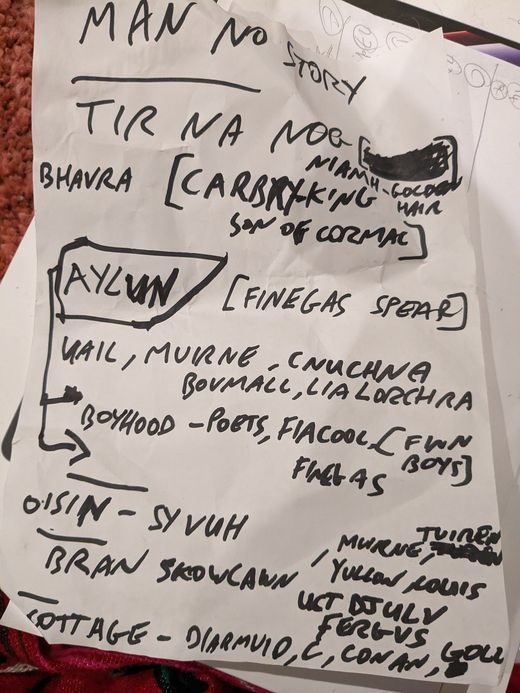 MAN NO STORY
TIR NA NOG
NIAMH-GOLDEN HAIR
BHAVRA [CARBRY-KING
SON OF CORMAC]
AYLUN [FINEGAS SPEAR]
UAIL, MURNE, CNUCHNA
BOVMALL, LIA LORCHRA
BOYHOOD - POETS, FIACOOL, [FINN BOYS]
FINEGAS
OISIN - SYVUH
BRAN SKOWLAWN, MURNE, TUIREN
YULLON
UCT DJULV
FERGUS
COTTAGE - DIARMUID, C, CONAN, GOLL